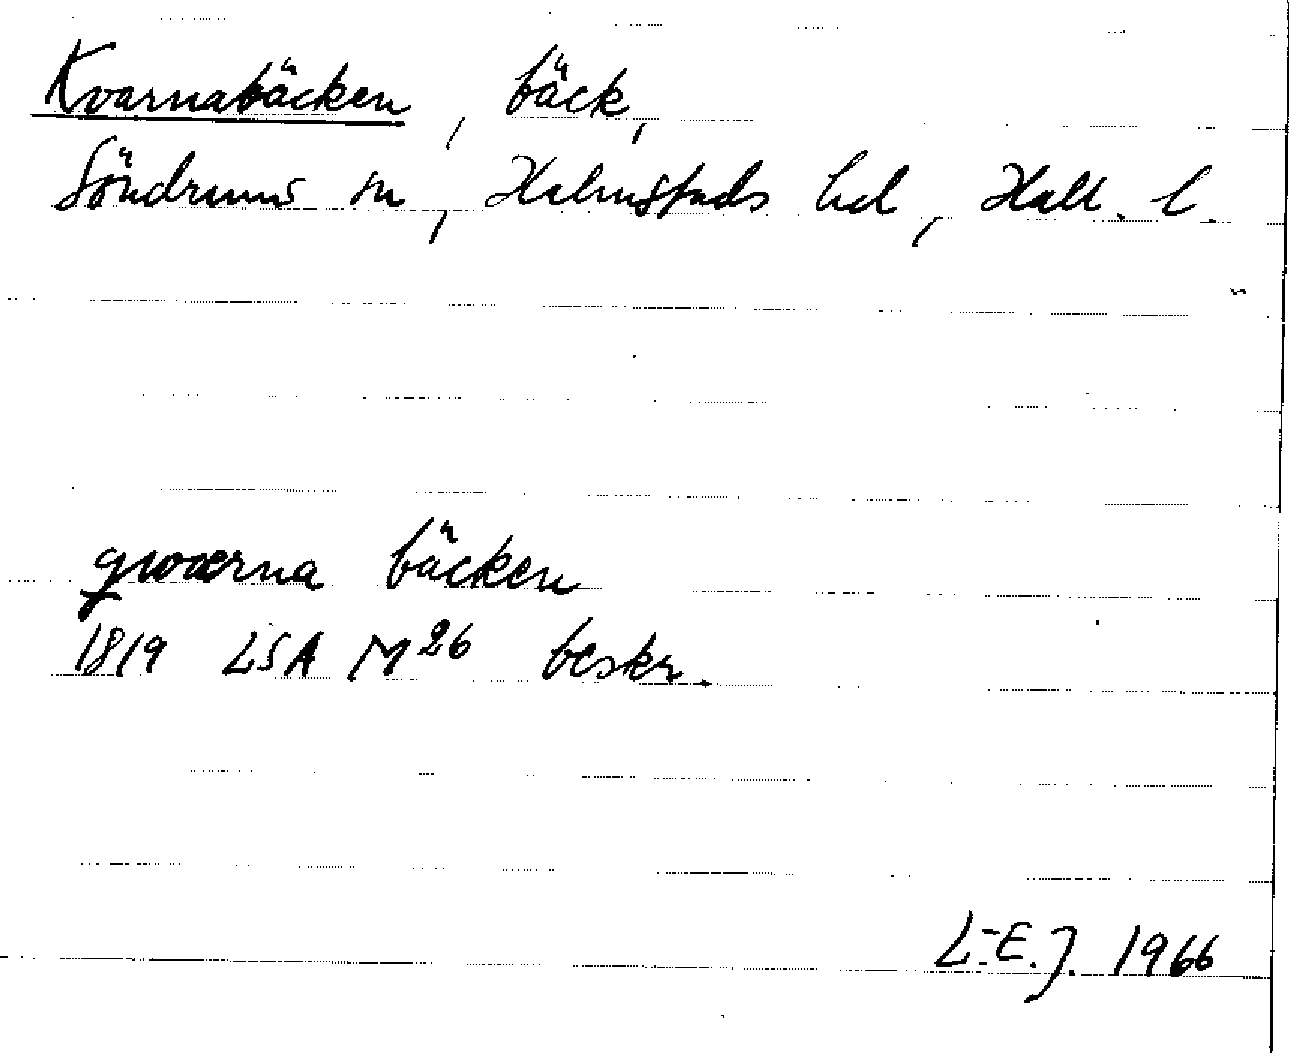 Kvarnabäcken, bäck,
Söndrums sn, Halmstads hd, Hall. l.
qwarna bäcken
1819 LSA M26 beskr.
L-E.J. 1966